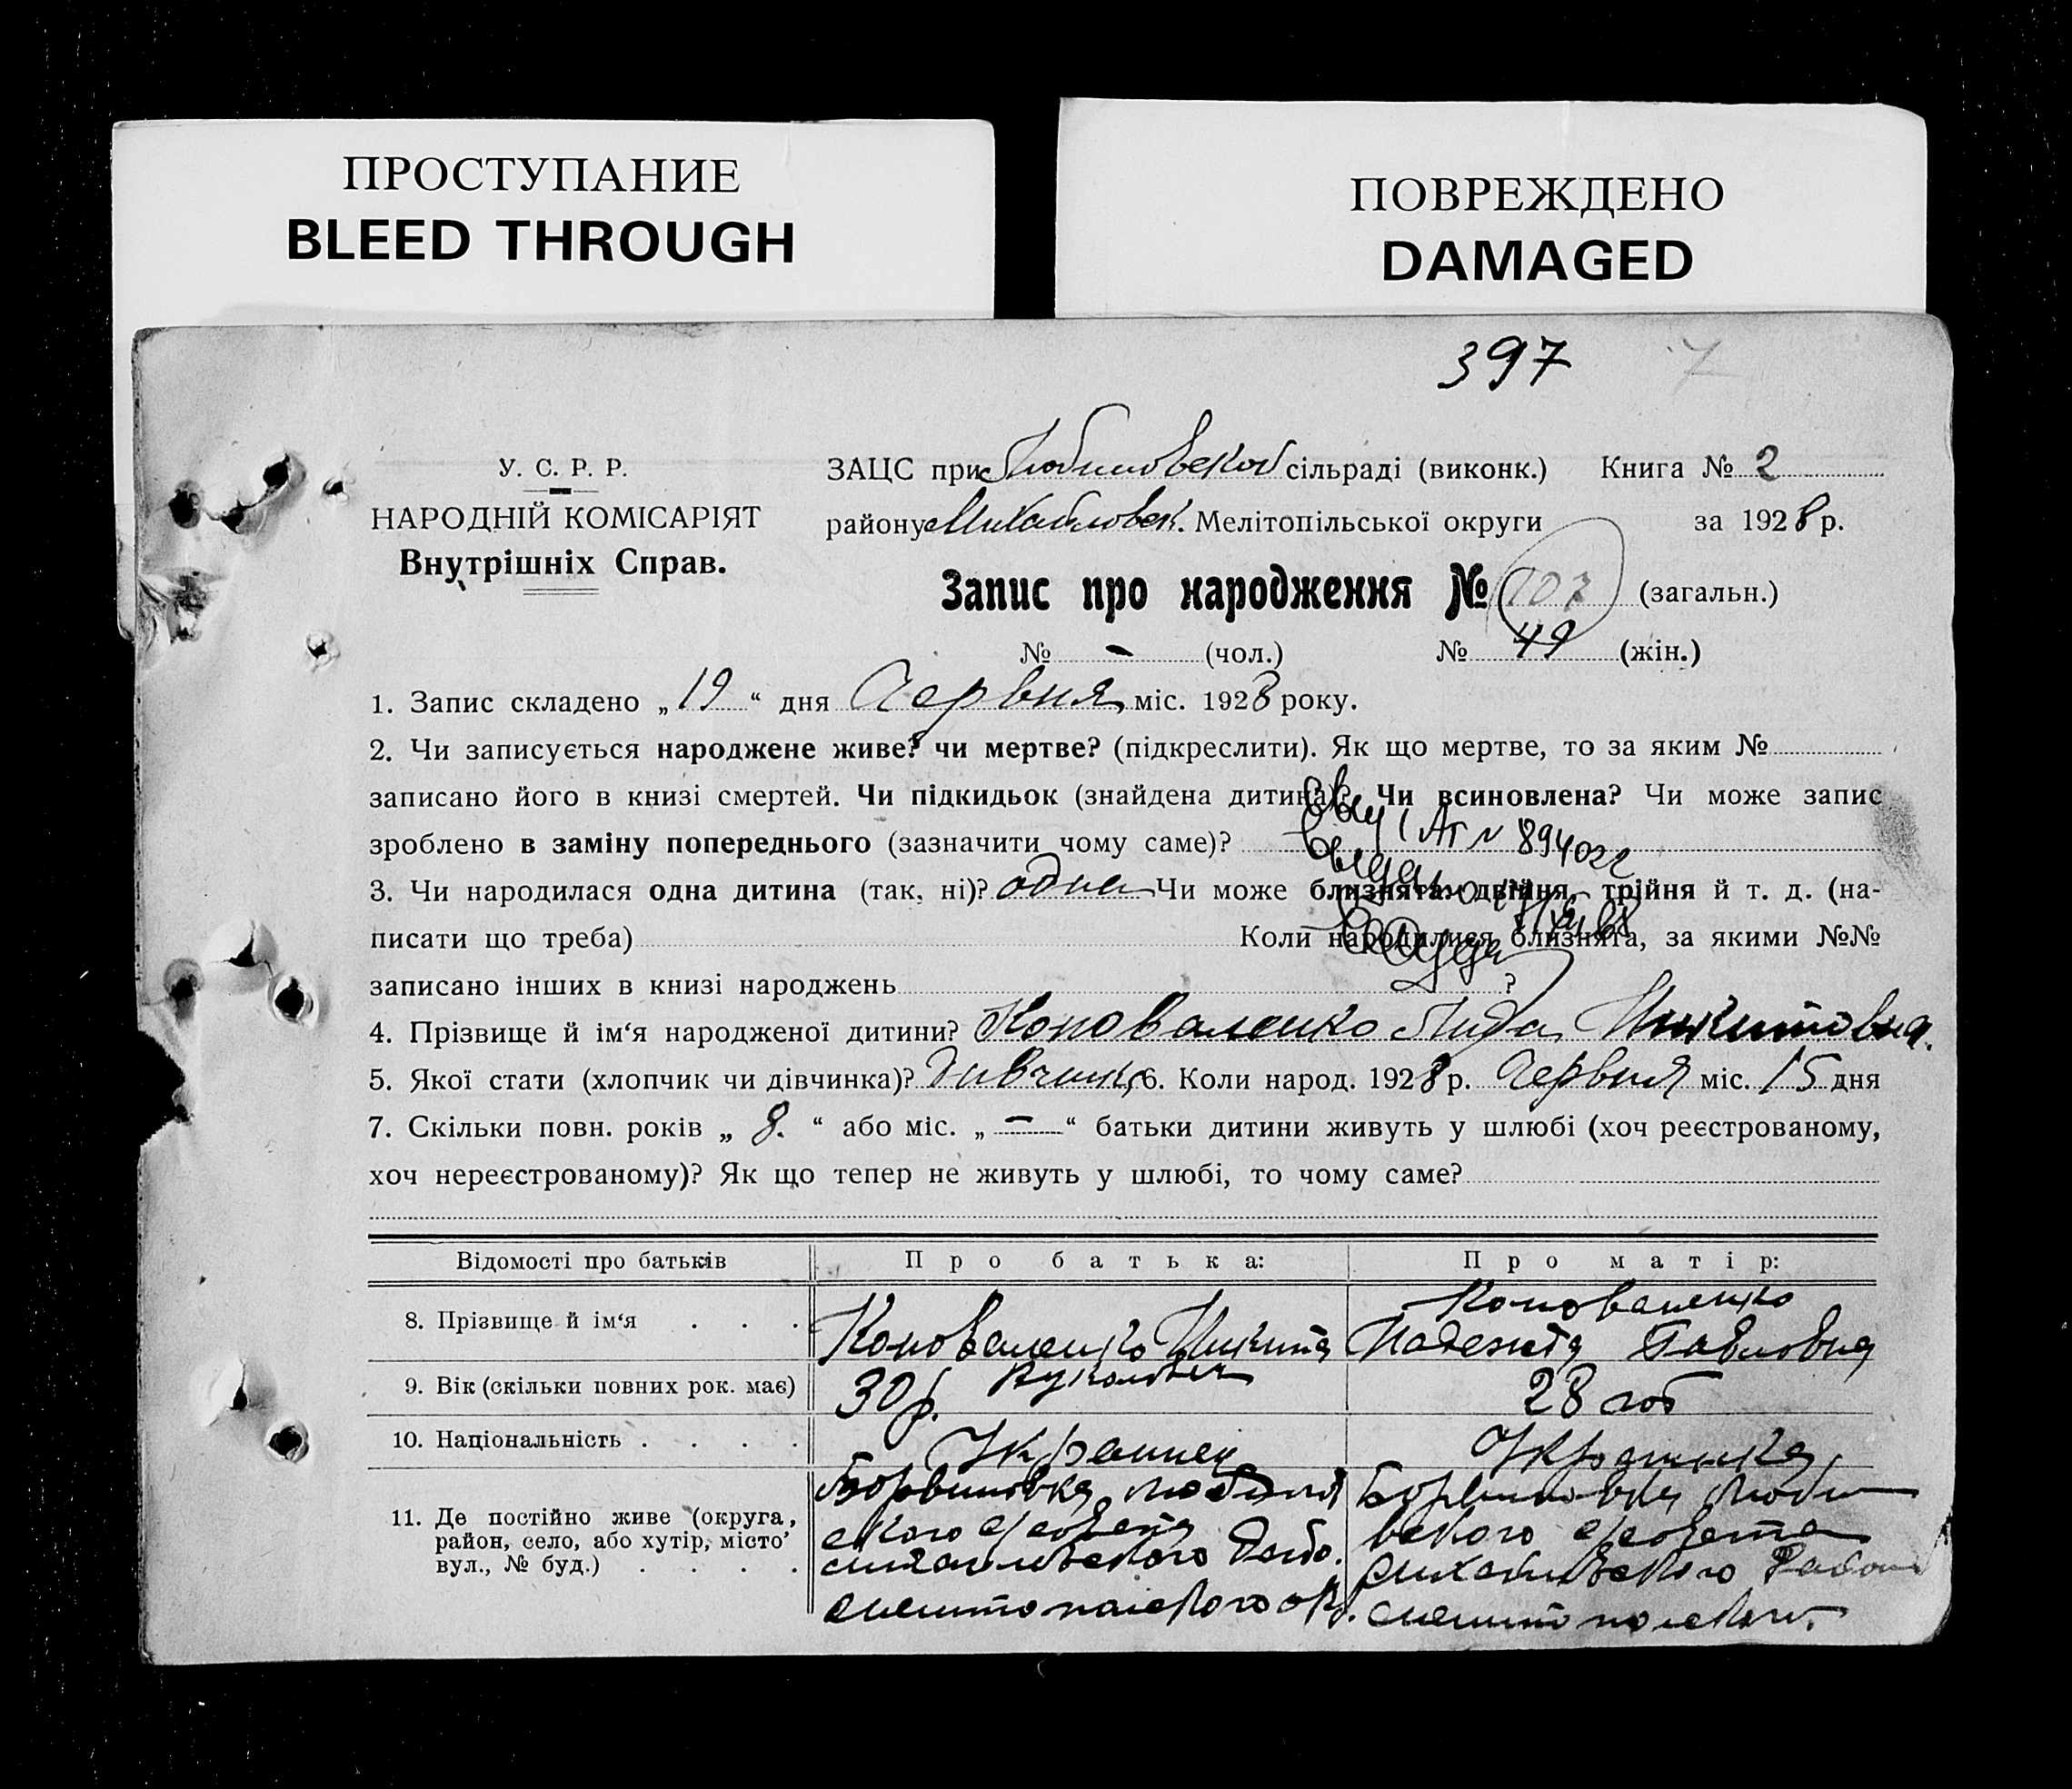 ПРОСТУПАНИЕ
BLEED THROUGH
ПОВРЕЖДЕНО
DAMAGED
397 7
У. С. Р. Р.
НАРОДНІЙ КОМІСАРІЯТ
Внутрішніх Справ.
ЗАЦС при Любимовской сільраді (виконк.) Книга № 2
району Михайловск. Мелітопільської округи за 1928 р.
Запис про народження № 107 (загальн.)
№ – (чол.) № 49 (жін.)
1. Запис складено „19“ дня Червня міс. 1928 року.
2. Чи записується народжене живе? чи мертве? (підкреслити). Як що мертве, то за яким №
записано його в книзі смертей. Чи підкидьок (знайдена дитина)? Чи всиновлена? Чи може запис
зроблено в заміну попереднього (зазначити чому саме)?
№ 894022
3. Чи народилася одна дитина (так, ні)? одна Чи може близнята: двійня, трійня й т. д. (на-
писати що треба) Коли народилися близнята, за якими №№
записано інших в книзі народжень ?
4. Прізвище й ім‘я народженої дитини? Коноваленко Лида Никитовна.
5. Якої стати (хлопчик чи дівчинка)? дивчинка 6. Коли народ. 1928 р. Червня міс. 15 дня
7. Скільки повн. років „ 8. “ або міс. „ — “ батьки дитини живуть у шлюбі (хоч реєстрованому,
хоч нереєстрованому)? Як що тепер не живуть у шлюбі, то чому саме?
Відомості про батьків Про батька: Про матір:
8. Прізвище й ім‘я . . . Коноваленко Никита Вуколович Коноваленко Надежда Павловна
9. Вік (скільки повних рок. має) 30 р. 28 год
10. Національність . . . . Украинец Украинка
11. Де постійно живе (округа,
район, село, або хутір, місто
вул., № буд.) . . . .